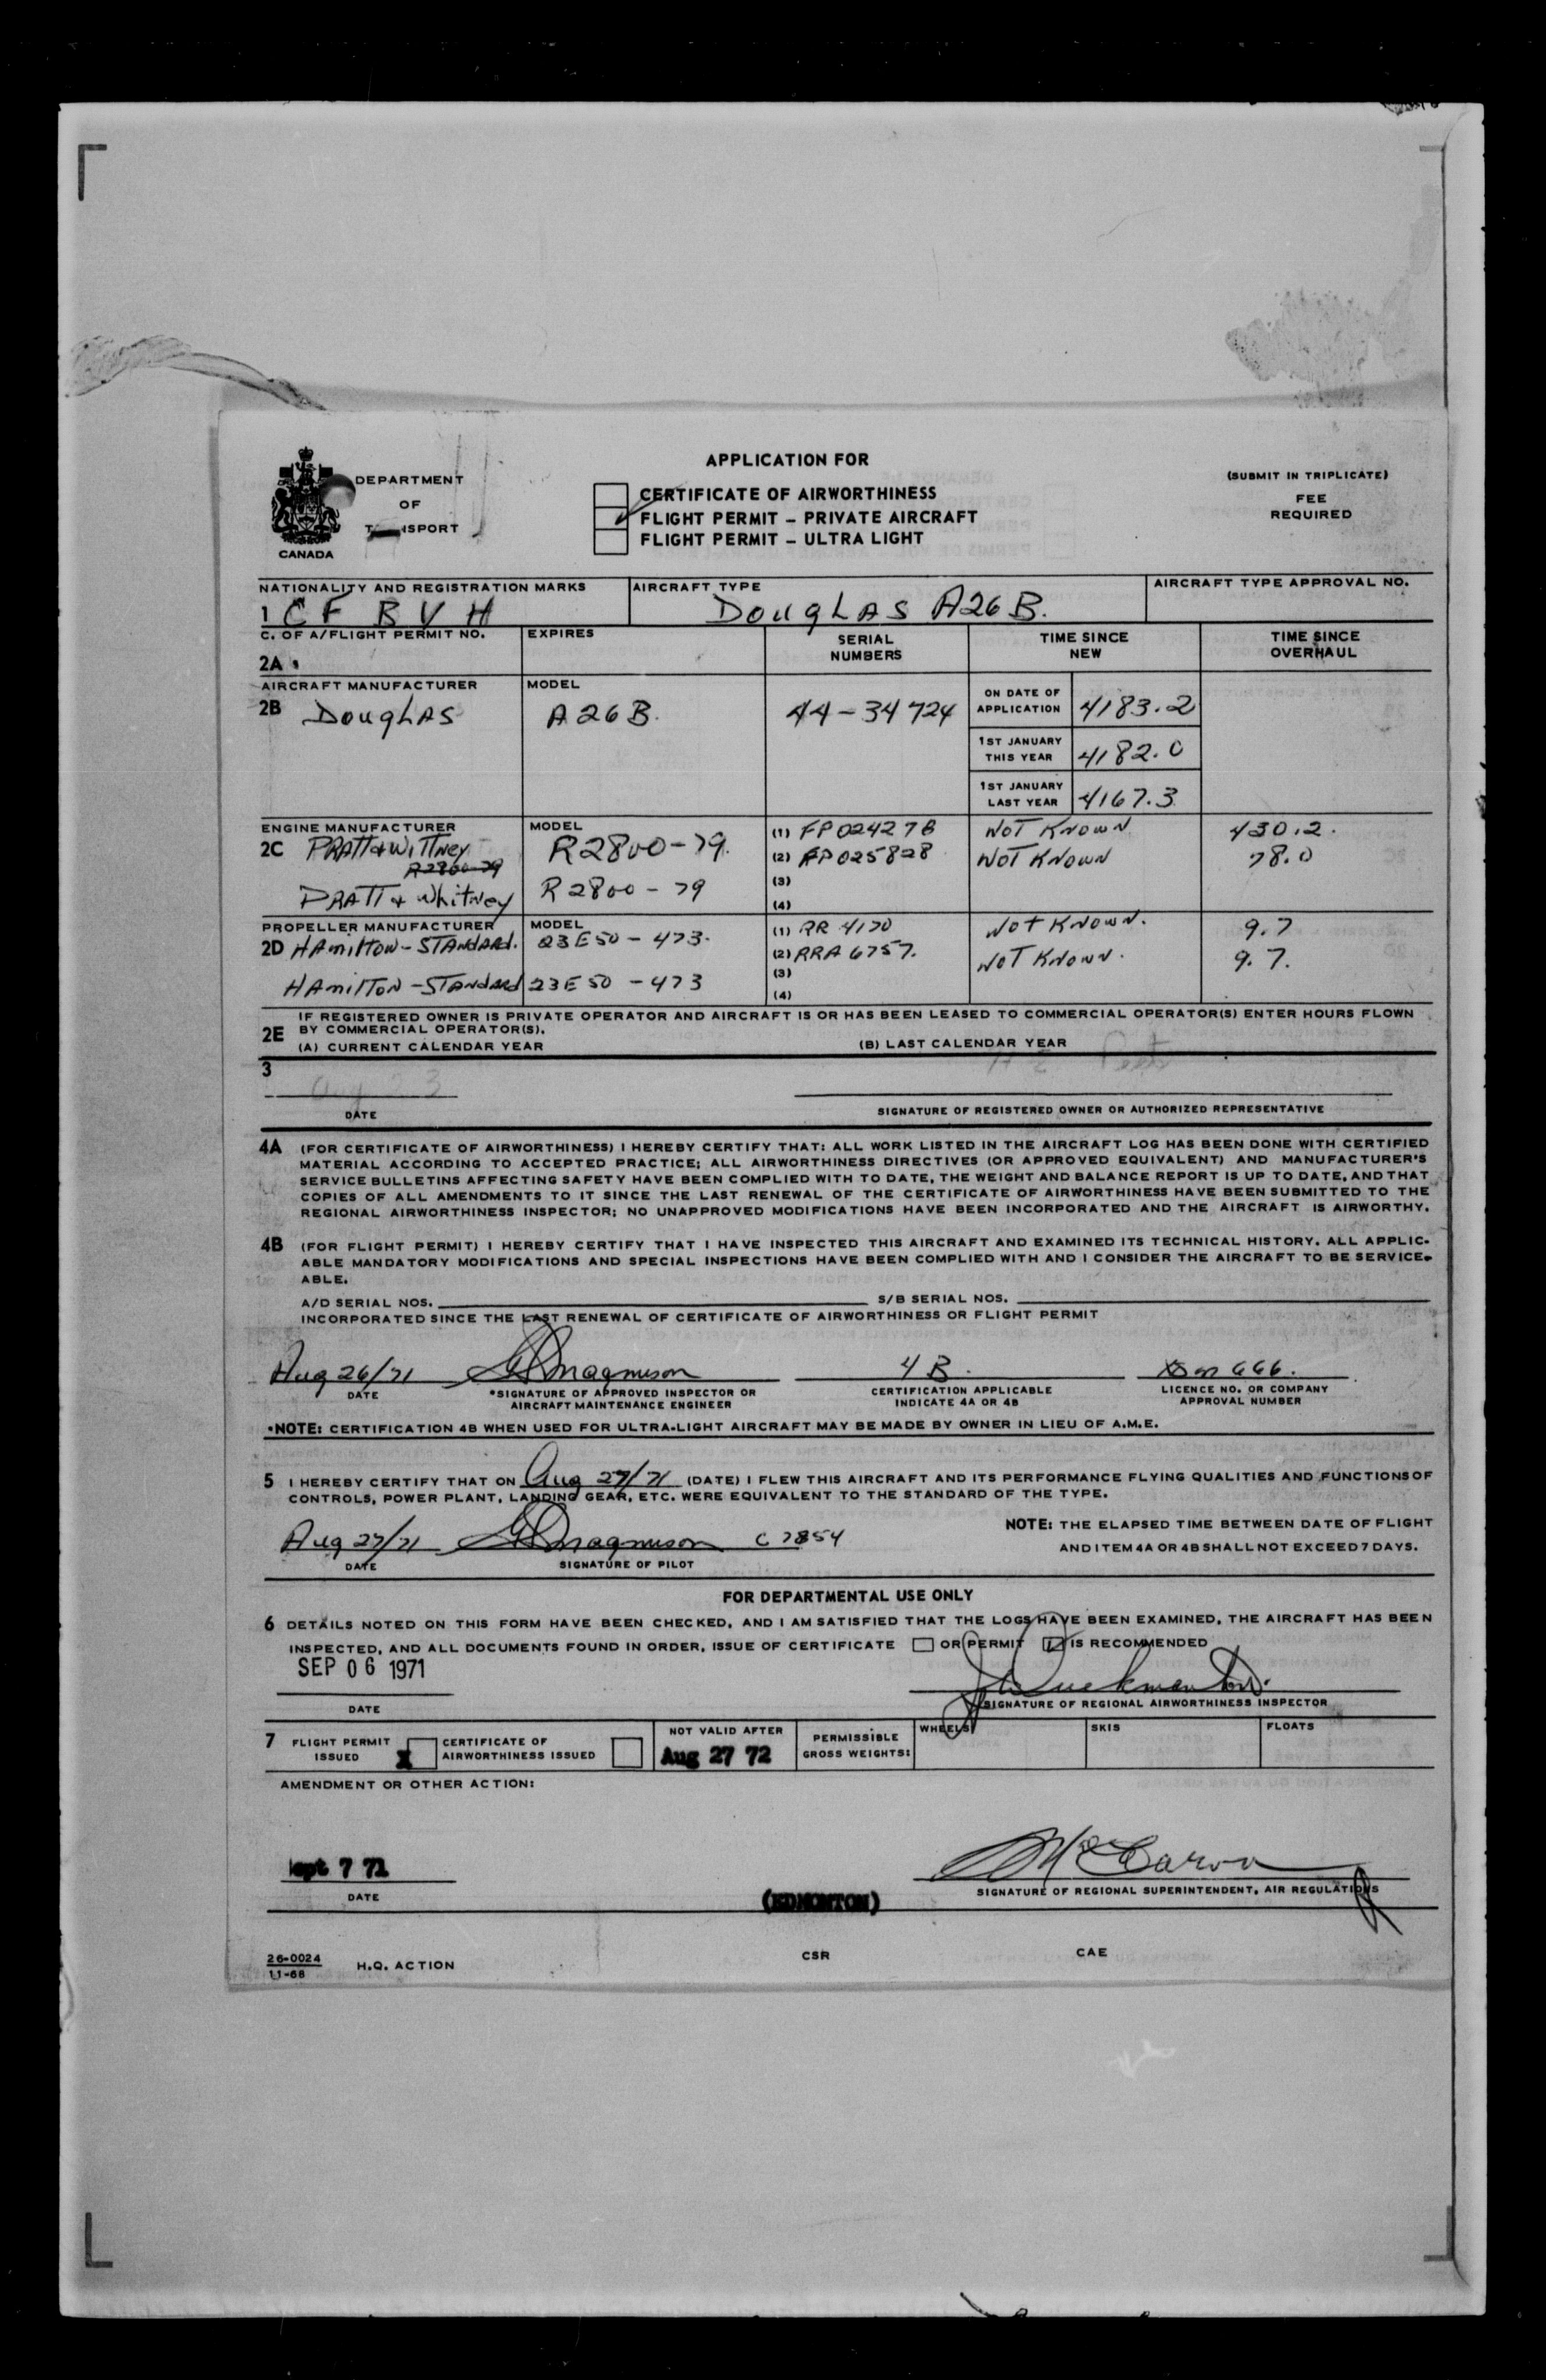 APPLICATION FOR
(SUBMIT IN TRIPLICATE)
DEPARTMENT
OF
CANADA
CERTIFICATE OF AIRWORTHINESS
FLIGHT PERMIT – PRIVATE AIRCRAFT
FLIGHT PERMIT – ULTRA LIGHT
FEE
REQUIRED
NATIONALITY AND REGISTRATION MARKS AIRCRAFT TYPE AIRCRAFT TYPE APPROVAL NO.
1 CF BVH DougLAS A26B.
C. OF A/FLIGHT PERMIT NO. EXPIRES SERIAL NUMBERS TIME SINCE NEW TIME SINCE OVERHAUL
2A
AIRCRAFT MANUFACTURER MODEL
2B DougLAS A26B. 44-34724 ON DATE OF APPLICATION 4183.2
1ST JANUARY THIS YEAR 4182.0
1ST JANUARY LAST YEAR 4167.3
ENGINE MANUFACTURER MODEL
2C PRATT & WITTney R2800-79. (1) FP024278 NOT KNOWN 430.2.
R2800-79 (2) FP025828 NOT KNOWN 78.0
PRATT & WhitNey R2800-79 (3)
(4)
PROPELLER MANUFACTURER MODEL
2D HAmilTON-STANdARd. 23E50-473. (1) RR 4170 NOT KNOWN. 9.7
(2) RRA 6757. NOT KNOWN. 9.7.
(3)
HAmilTON-STANdARd 23E50-473 (4)
IF REGISTERED OWNER IS PRIVATE OPERATOR AND AIRCRAFT IS OR HAS BEEN LEASED TO COMMERCIAL OPERATOR(S) ENTER HOURS FLOWN
2E BY COMMERCIAL OPERATOR(S).
(A) CURRENT CALENDAR YEAR (B) LAST CALENDAR YEAR
3
DATE SIGNATURE OF REGISTERED OWNER OR AUTHORIZED REPRESENTATIVE
4A (FOR CERTIFICATE OF AIRWORTHINESS) I HEREBY CERTIFY THAT: ALL WORK LISTED IN THE AIRCRAFT LOG HAS BEEN DONE WITH CERTIFIED
MATERIAL ACCORDING TO ACCEPTED PRACTICE; ALL AIRWORTHINESS DIRECTIVES (OR APPROVED EQUIVALENT) AND MANUFACTURER'S
SERVICE BULLETINS AFFECTING SAFETY HAVE BEEN COMPLIED WITH TO DATE, THE WEIGHT AND BALANCE REPORT IS UP TO DATE, AND THAT
COPIES OF ALL AMENDMENTS TO IT SINCE THE LAST RENEWAL OF THE CERTIFICATE OF AIRWORTHINESS HAVE BEEN SUBMITTED TO THE
REGIONAL AIRWORTHINESS INSPECTOR; NO UNAPPROVED MODIFICATIONS HAVE BEEN INCORPORATED AND THE AIRCRAFT IS AIRWORTHY.
4B (FOR FLIGHT PERMIT) I HEREBY CERTIFY THAT I HAVE INSPECTED THIS AIRCRAFT AND EXAMINED ITS TECHNICAL HISTORY. ALL APPLIC-
ABLE MANDATORY MODIFICATIONS AND SPECIAL INSPECTIONS HAVE BEEN COMPLIED WITH AND I CONSIDER THE AIRCRAFT TO BE SERVICE-
ABLE.
A/D SERIAL NOS. S/B SERIAL NOS.
INCORPORATED SINCE THE LAST RENEWAL OF CERTIFICATE OF AIRWORTHINESS OR FLIGHT PERMIT
Aug 26/71 Magnuson 4B. 666.
DATE *SIGNATURE OF APPROVED INSPECTOR OR AIRCRAFT MAINTENANCE ENGINEER CERTIFICATION APPLICABLE INDICATE 4A OR 4B LICENCE NO. OR COMPANY APPROVAL NUMBER
*NOTE: CERTIFICATION 4B WHEN USED FOR ULTRA-LIGHT AIRCRAFT MAY BE MADE BY OWNER IN LIEU OF A.M.E.
5 I HEREBY CERTIFY THAT ON Aug 27/71 (DATE) I FLEW THIS AIRCRAFT AND ITS PERFORMANCE FLYING QUALITIES AND FUNCTIONS OF
CONTROLS, POWER PLANT, LANDING GEAR, ETC. WERE EQUIVALENT TO THE STANDARD OF THE TYPE.
Aug 27/71 Magnuson C 7854
DATE SIGNATURE OF PILOT
NOTE: THE ELAPSED TIME BETWEEN DATE OF FLIGHT
AND ITEM 4A OR 4B SHALL NOT EXCEED 7 DAYS.
FOR DEPARTMENTAL USE ONLY
6 DETAILS NOTED ON THIS FORM HAVE BEEN CHECKED, AND I AM SATISFIED THAT THE LOGS HAVE BEEN EXAMINED, THE AIRCRAFT HAS BEEN
INSPECTED, AND ALL DOCUMENTS FOUND IN ORDER, ISSUE OF CERTIFICATE OR PERMIT IS RECOMMENDED
SEP 06 1971
DATE SIGNATURE OF REGIONAL AIRWORTHINESS INSPECTOR
7 FLIGHT PERMIT ISSUED X CERTIFICATE OF AIRWORTHINESS ISSUED NOT VALID AFTER Aug 27 72 PERMISSIBLE GROSS WEIGHTS: WHEELS SKIS FLOATS
AMENDMENT OR OTHER ACTION:
7 71
DATE (EDMONTON) SIGNATURE OF REGIONAL SUPERINTENDENT, AIR REGULATIONS
26-0024
11-68
H.Q. ACTION CSR CAE